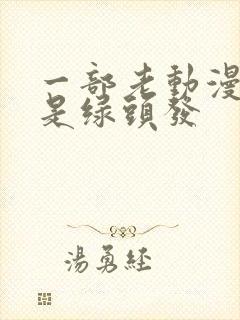 一部老動漫
是绿頭發
湯勇經